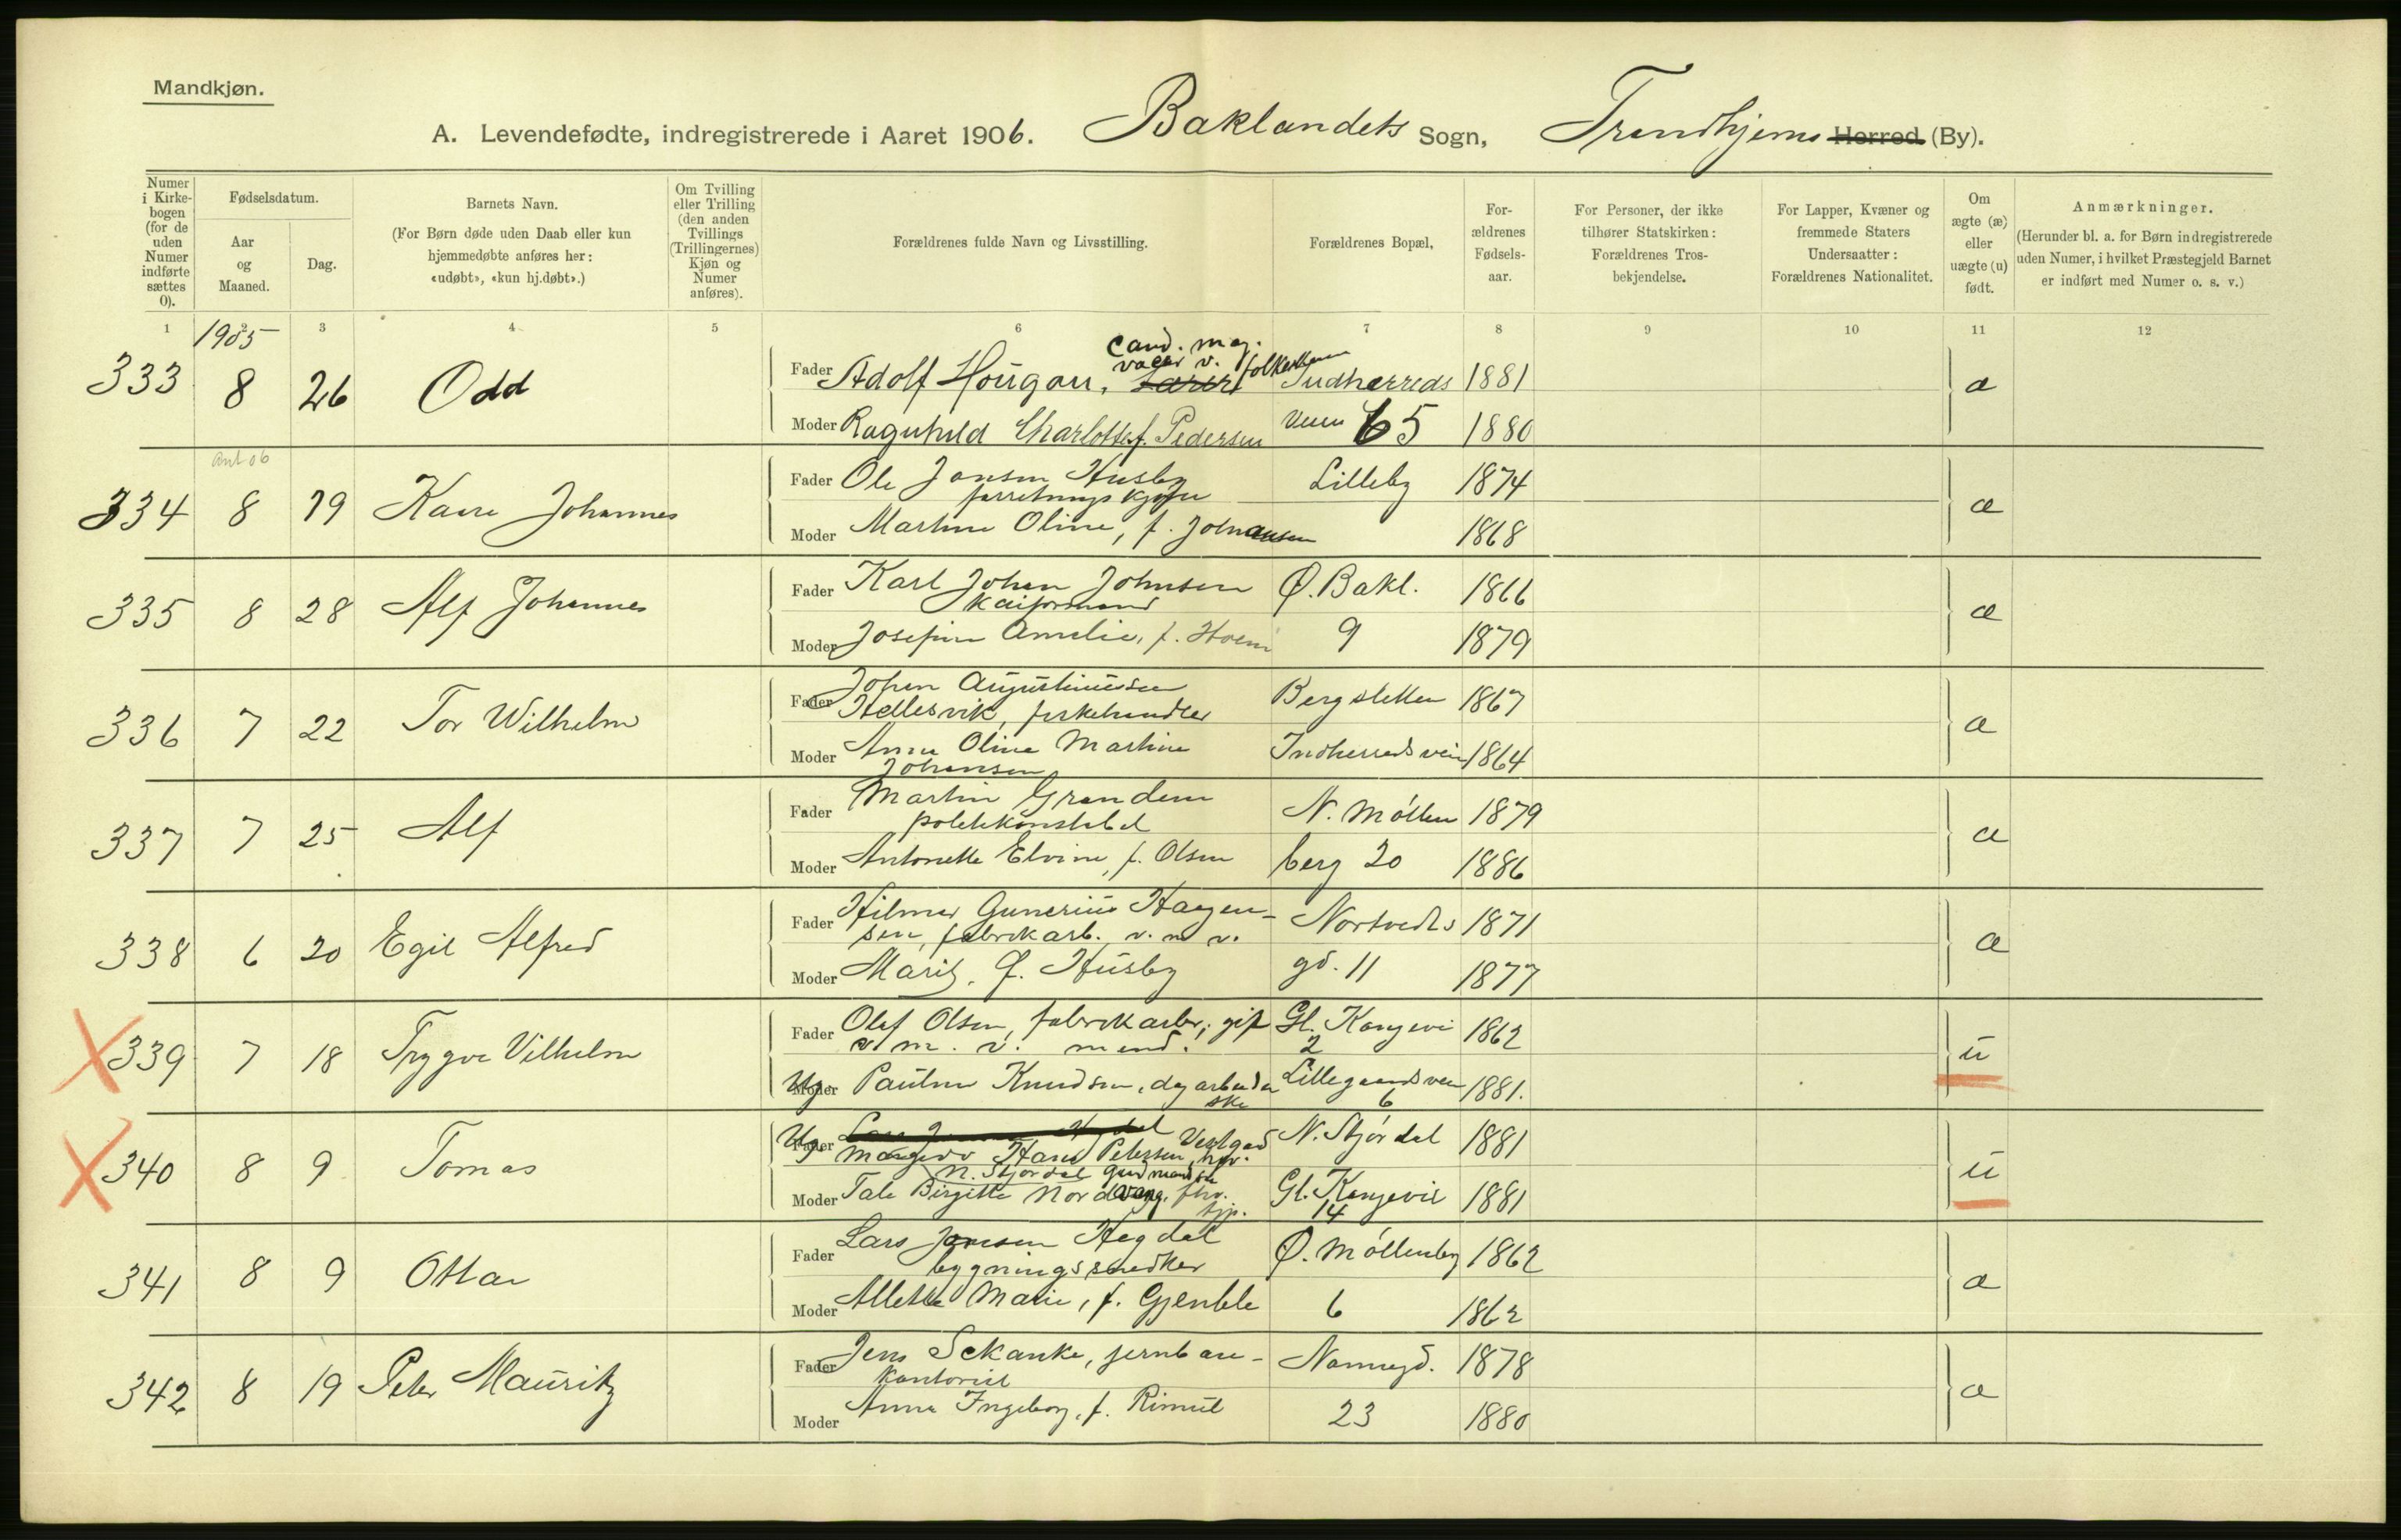 Mandkjøn.
A. Levendefødte, indregistrerede i Aaret 1906. Baklandets Sogn, Trondhjems Herred (By).
Numer i Kirkebogen (for de uden Numer indførte sættes 0).
Fødselsdatum.
Aar og Maaned.
Dag.
Barnets Navn.
(For Børn døde uden Daab eller kun hjemmedøbte anføres her: «udøbt», «kun hj.døbt».)
Om Tvilling eller Trilling (den anden Tvillings (Trillingernes) Kjøn og Numer anføres).
Forældrenes fulde Navn og Livsstilling.
Forældrenes Bopæl,
For-ældrenes Fødsels-aar.
For Personer, der ikke tilhører Statskirken: Forældrenes Tros-bekjendelse.
For Lapper, Kvæner og fremmede Staters Undersaatter: Forældrenes Nationalitet.
Om ægte (æ) eller uægte (u) født.
Anmærkninger.
(Herunder bl. a. for Børn indregistrerede uden Numer, i hvilket Præstegjeld Barnet er indført med Numer o. s. v.)
1 2 3 4 5 6 7 8 9 10 11 12
1905
cand. mag.
333 8 26 Odd Fader Adolf Hougan, Indherreds 1881 æ
Moder Ragnhild Charlotte f. Pedersen veien 65 1880
Ant 06
334 8 19 Kaare Johannes Fader Ole Jonsen Husby Lilleby 1874 æ
Moder Martine Oline, f. Johnansen 1868
335 8 28 Alf Johannes Fader Karl Johan Johnsen Ø. Bakl. 1866 æ
kaiformand
Moder Josefine Amelie, f. Hoem 9 1879
336 7 22 Tor Wilhelm Fader Johan Augustinussen Bergsletten 1867 æ
Hellesvik, fiskehandler
Moder Anna Oline Martine Indherredsvein 1864
Johansen
337 7 25 Alf Fader Martin Grandem N. Møllen 1879 æ
politikonstabel
Moder Antonette Elvine, f. Olsen berg 20 1886
338 6 20 Egil Alfred Fader Hilmar Gunerius Haagen- 1871 æ
sen, fabrikarb. v. m. v.
Moder Marit, f. Husby gd. 11 1877
339 7 18 Trygve Vilhelm Fader Olaf Olsen, fabrikarbr, gift Gl. Kongevei 1862 u
v. m. v. mand. 2
Ug Moder Pauline Knudsen, dagarbeider Lillegaardsvei 1881.
ske 6
340 8 9 Tomas Ug Fader N. Stjørdal 1881 u
Hans Petersen
N. Stjørdal gaardmandss.
Moder Tale Birgitte Nordvang, Gl. Kongevei 1881
tjp. 14
341 8 9 Ottar Fader Lars Jonsen Hegdal Ø. Møllenbg 1862 æ
bygningssnedker
Moder Allette Marie, f. Gjenble 6 1862
342 8 19 Peter Mauritz Fader Jens Schanke, jernbane- Nonnegd. 1878 æ
kontorist
Moder Anna Ingeborg, f. Rimul 23 1880